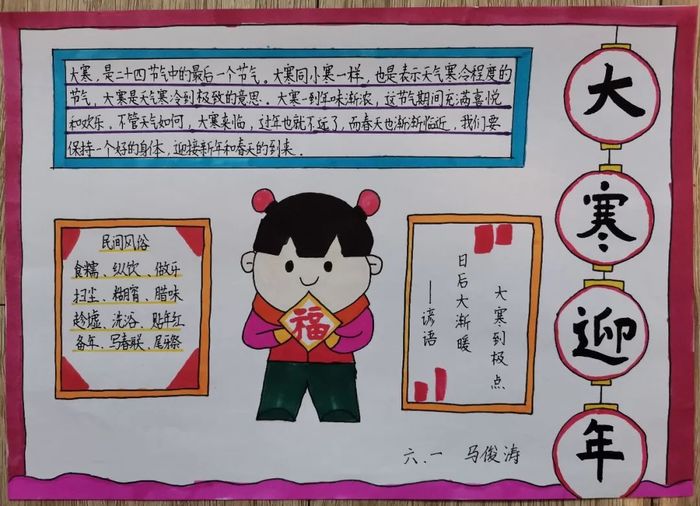 大寒，是二十四节气中的最后一个节气，大寒同小寒一样，也是表示天气寒冷程度的
节气，大寒是天气寒冷到极致的意思。大寒一到年味渐浓，这节气期间充满喜悦
和欢乐，不管天气如何，大寒来临，过年也就不远了，而春天也渐渐临近，我们要
保持一个好的身体，迎接新年和春天的到来。
大
寒
迎
年
民间风俗
食糯、纵饮、做牙
扫尘、糊窗、腊味
趁墟、洗浴、贴年红
备年、写春联、尾祭
福
大寒到极点
日后大渐暖
——谚语
六.一 马俊涛